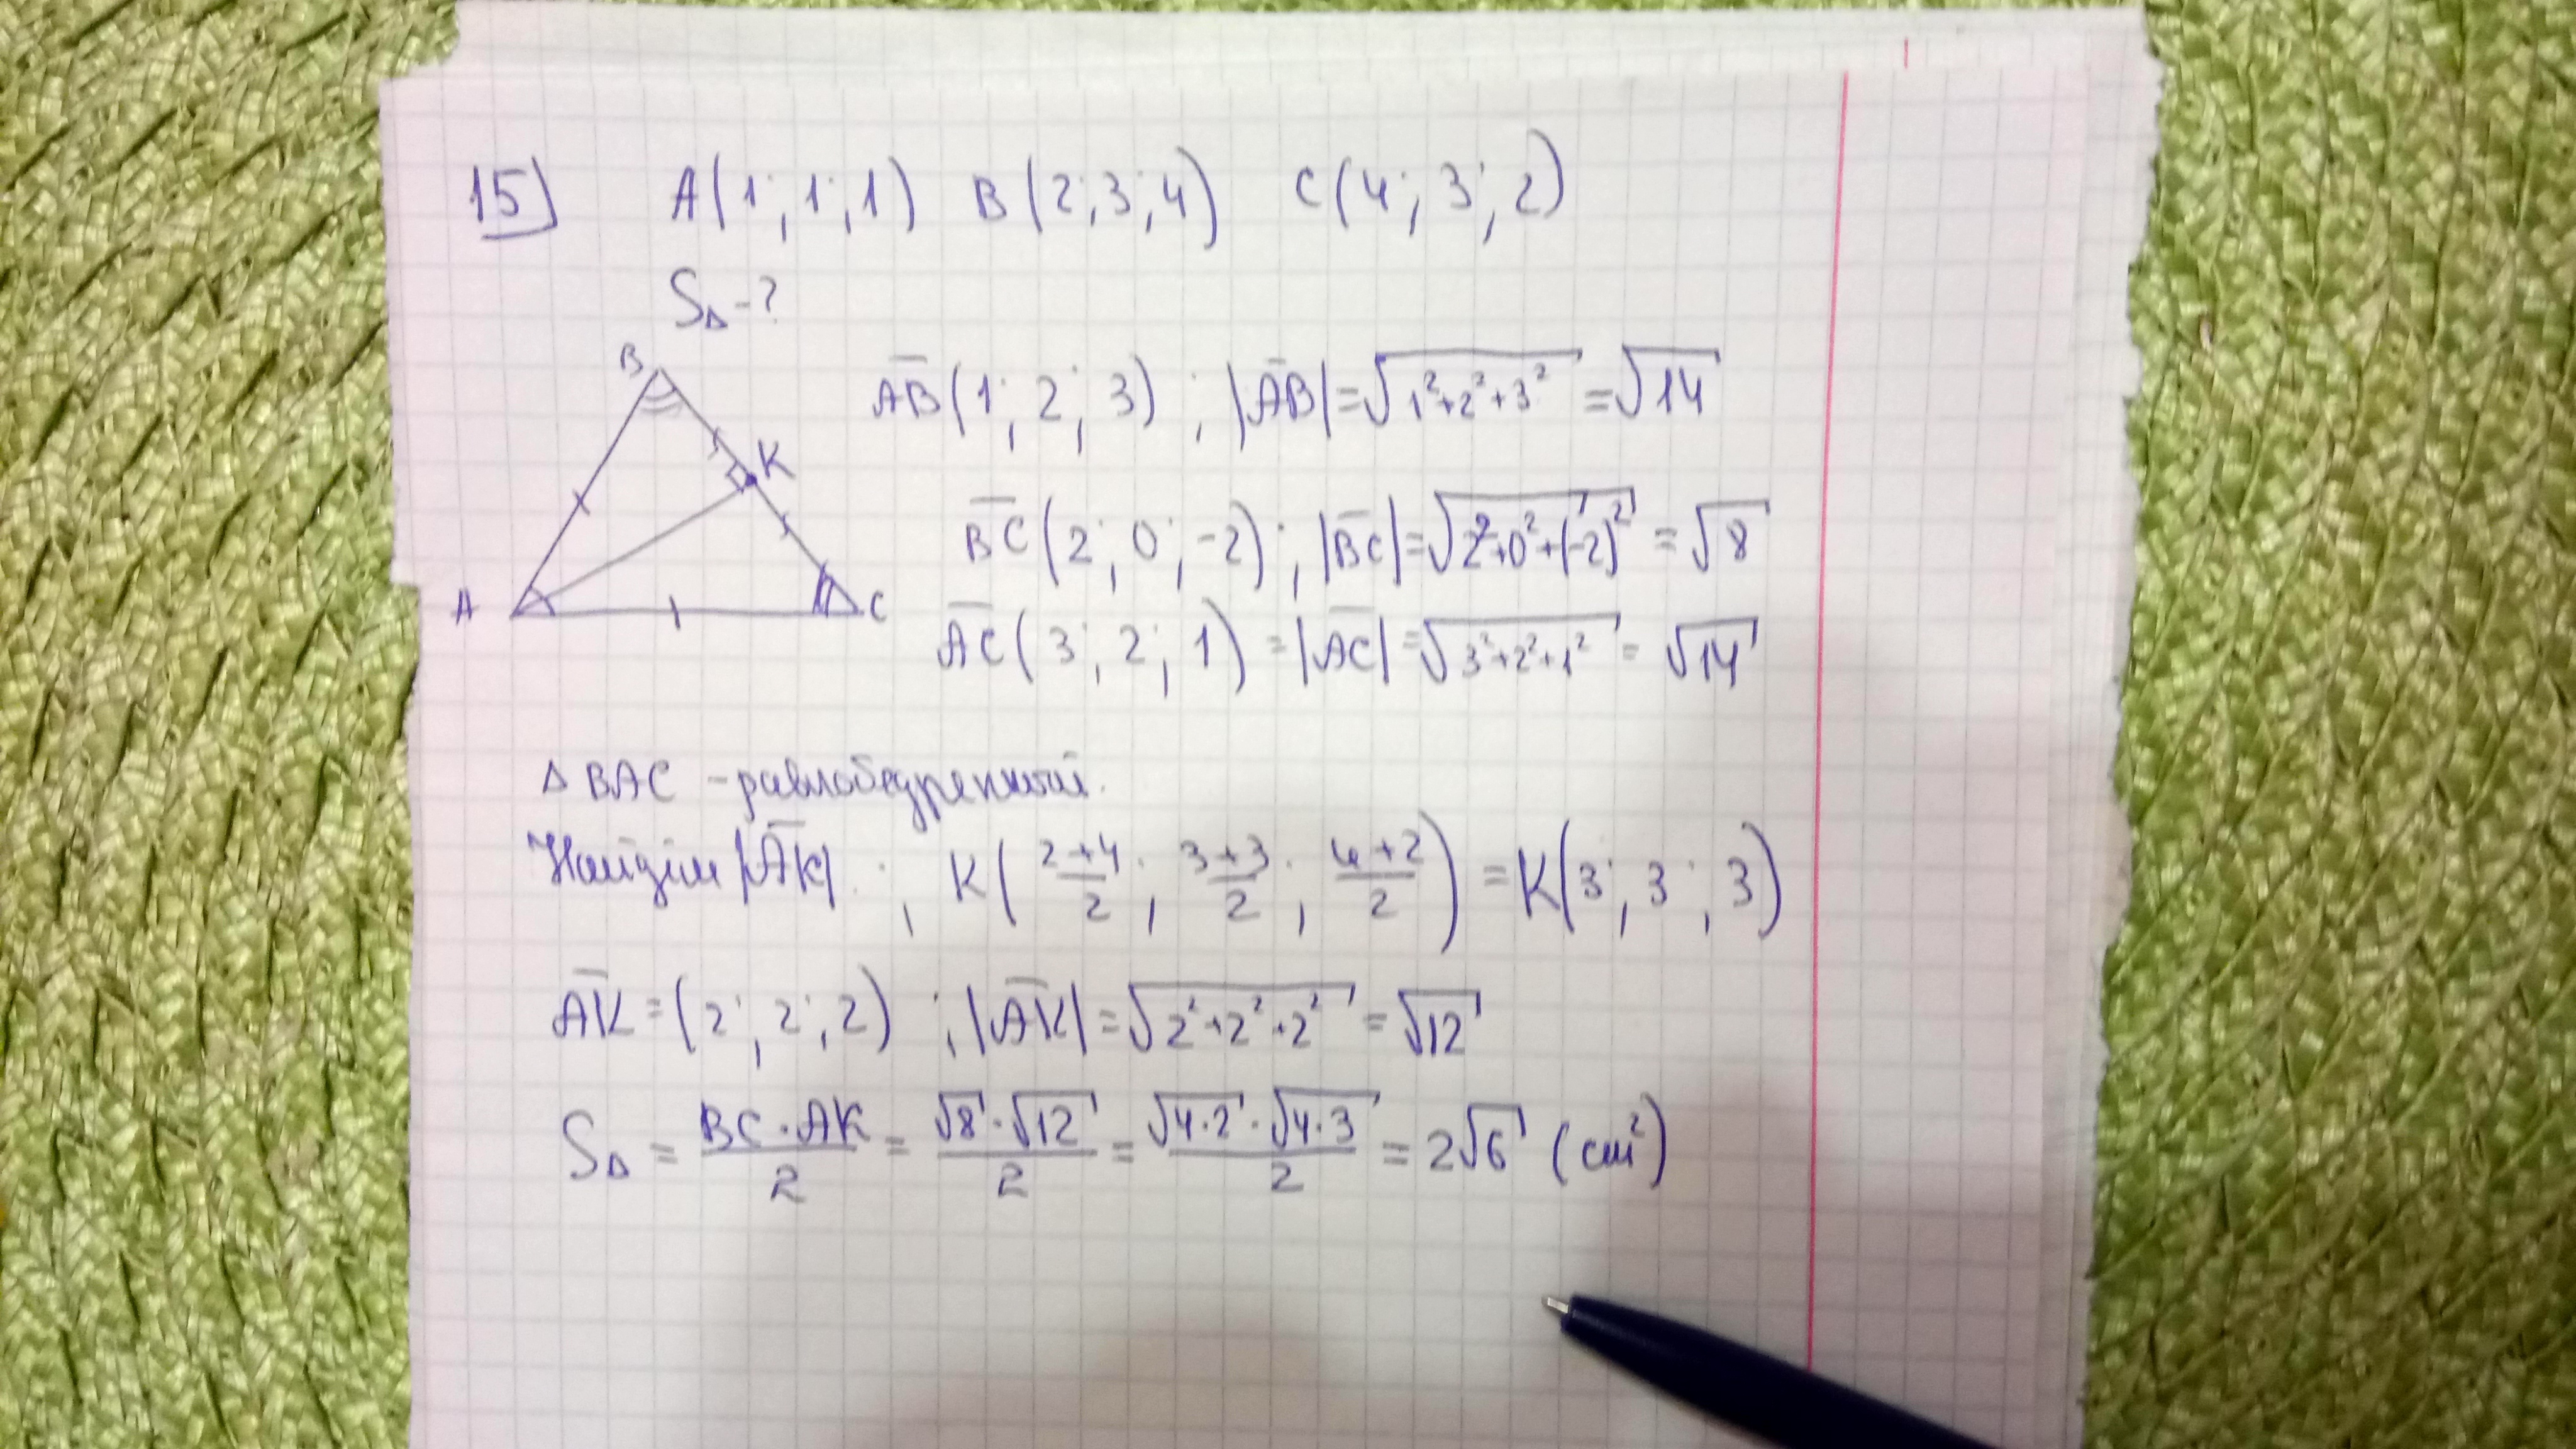 15) A(1; 1; 1) B(2; 3; 4) C(4; 3; 2)
S∆ -?
B
K
A
C
AB̅(1; 2; 3) ; |AB̅| = √(1²+2²+3²) = √14
BC̅(2; 0; -2) ; |BC̅| = √(2²+0²+(-2)²) = √8
AC̅(3; 2; 1) = |AC̅| = √(3²+2²+1²) = √14
∆ BAC - равнобедренный.
Найдём |AK̅|. ; K((2+4)/2; (3+3)/2; (4+2)/2) = K(3; 3; 3)
AK̅ = (2; 2; 2) ; |AK̅| = √(2²+2²+2²) = √12
S∆ = (BC·AK)/2 = (√8·√12)/2 = (√(4·2)·√(4·3))/2 = 2√6 (см²)